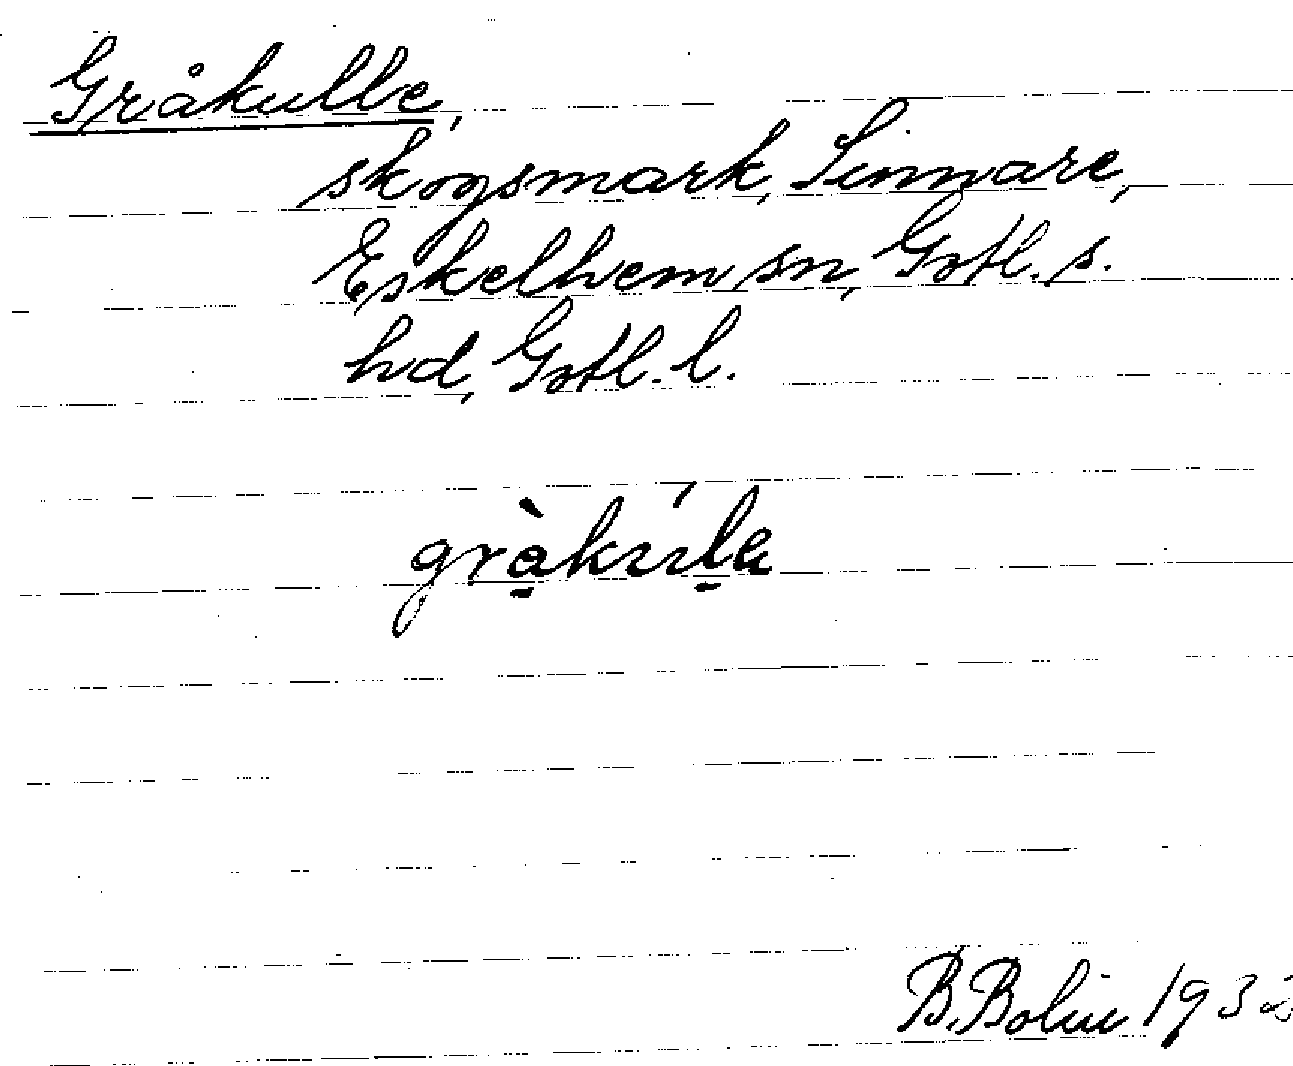 Gråkulle,
skogsmark, Simmare,
Eskelhem sn, Gotl. s.
hd, Gotl. l.
B. Bolin 1932